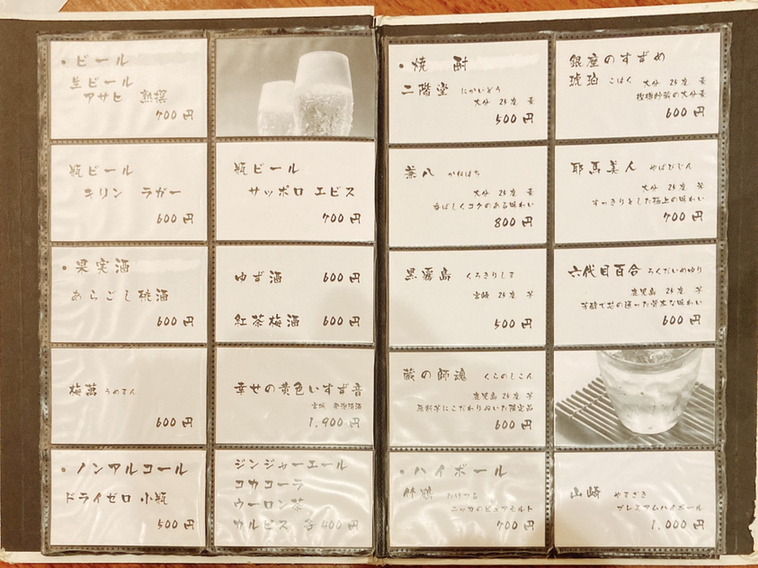 ・ビール
生ビール
アサヒ 熟撰
700円
瓶ビール
キリン ラガー
600円
瓶ビール
サッポロ エビス
700円
・果実酒
あらごし桃酒
600円
ゆず酒 600円
紅茶梅酒 600円
梅萬 うめまん
600円
幸せの黄色いすず音
宮城 発泡清酒
1,900円
・ノンアルコール
ドライゼロ 小瓶
500円
ジンジャーエール
コカコーラ
ウーロン茶
カルピス 各400円
・焼酎
二階堂 にかいどう
大分 25度 麦
500円
銀座のすずめ
琥珀 こはく 大分 25度 麦
樫樽貯蔵の大分麦
600円
兼八 かねはち
大分 25度 麦
香ばしくコクのある味わい
800円
耶馬美人 やばびじん
大分 25度 芋
すっきりとした極上の味わい
700円
黒霧島 くろきりしま
宮崎 25度 芋
500円
六代目百合 ろくだいめゆり
鹿児島 25度 芋
600円
蔵の師魂 くらのしこん
鹿児島 25度 芋
原料芋にこだわりぬいた限定品
600円
・ハイボール
竹鶴 たけつる
ニッカのピュアモルト
700円
山崎 やまざき
プレミアムハイボール
1,000円